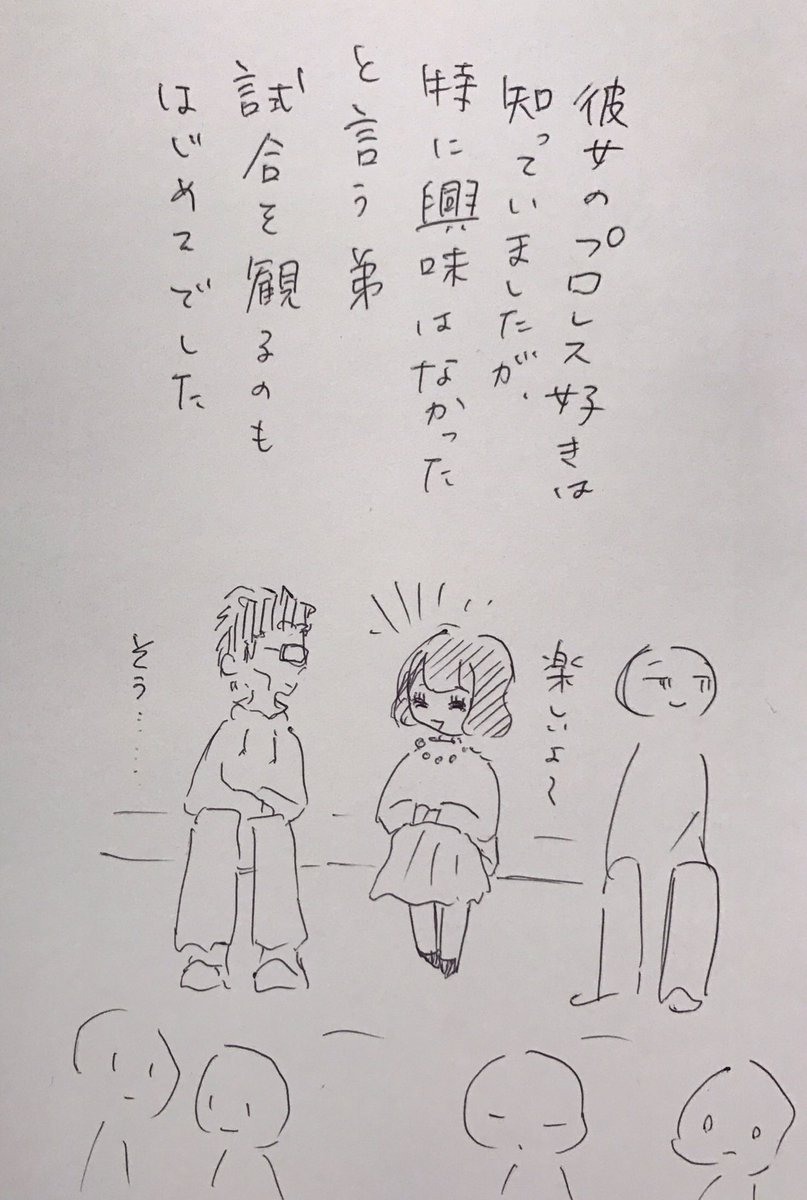 彼女のプロレス好きは
知っていましたが、
特に興味はなかった
と言う弟
試合を観るのも
はじめてでした
楽しいよ〜
そう………